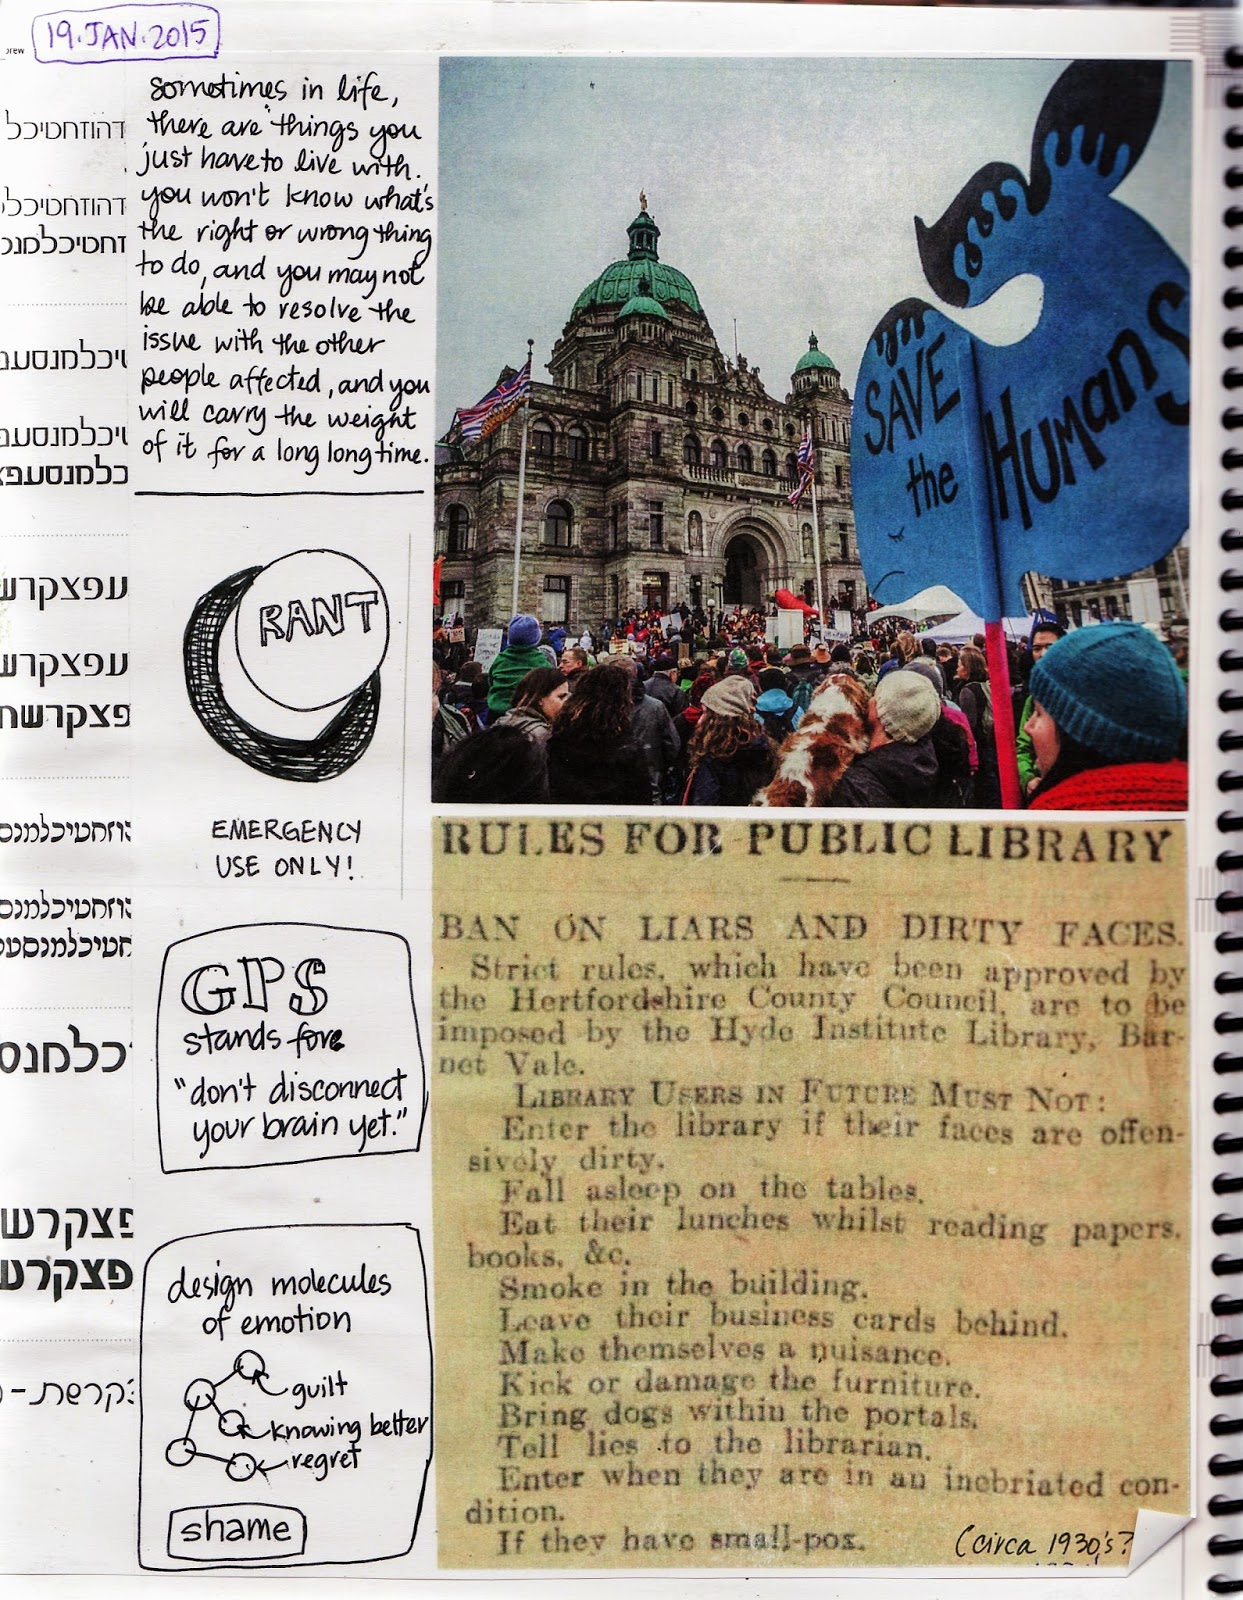 19.JAN.2015
sometimes in life,
there are "things you
just have to live with.
you won't know what's
the right or wrong thing
to do, and you may not
be able to resolve the
issue with the other
people affected, and you
will carry the weight
of it for a long long time.
RANT
EMERGENCY
USE ONLY!
GPS
stands for
"don't disconnect
your brain yet."
design molecules
of emotion
guilt
knowing better
regret
shame
SAVE
the
Humans
RULES FOR PUBLIC LIBRARY
BAN ON LIARS AND DIRTY FACES.
Strict rules, which have been approved by
the Hertfordshire County Council, are to be
imposed by the Hyde Institute Library, Bar-
net Vale.
LIBRARY USERS IN FUTURE MUST NOT:
Enter the library if their faces are offen-
sively dirty.
Fall asleep on the tables.
Eat their lunches whilst reading papers,
books, &c.
Smoke in the building.
Leave their business cards behind.
Make themselves a nuisance.
Kick or damage the furniture.
Bring dogs within the portals.
Tell lies to the librarian.
Enter when they are in an inebriated con-
dition.
If they have small-pox.
(circa 1930's?
דהוזחטיכל
דהוזחטיכל
זחטיכלמנ
יכלמנסע
יכלמנסע
כלמנסעפ
עפצקרש
עפצקרש
פצקרש
וזחטיכלמנס
וזחטיכלמנס
חטיכלמנסע
כלמנס
פצקרש
פצקרש